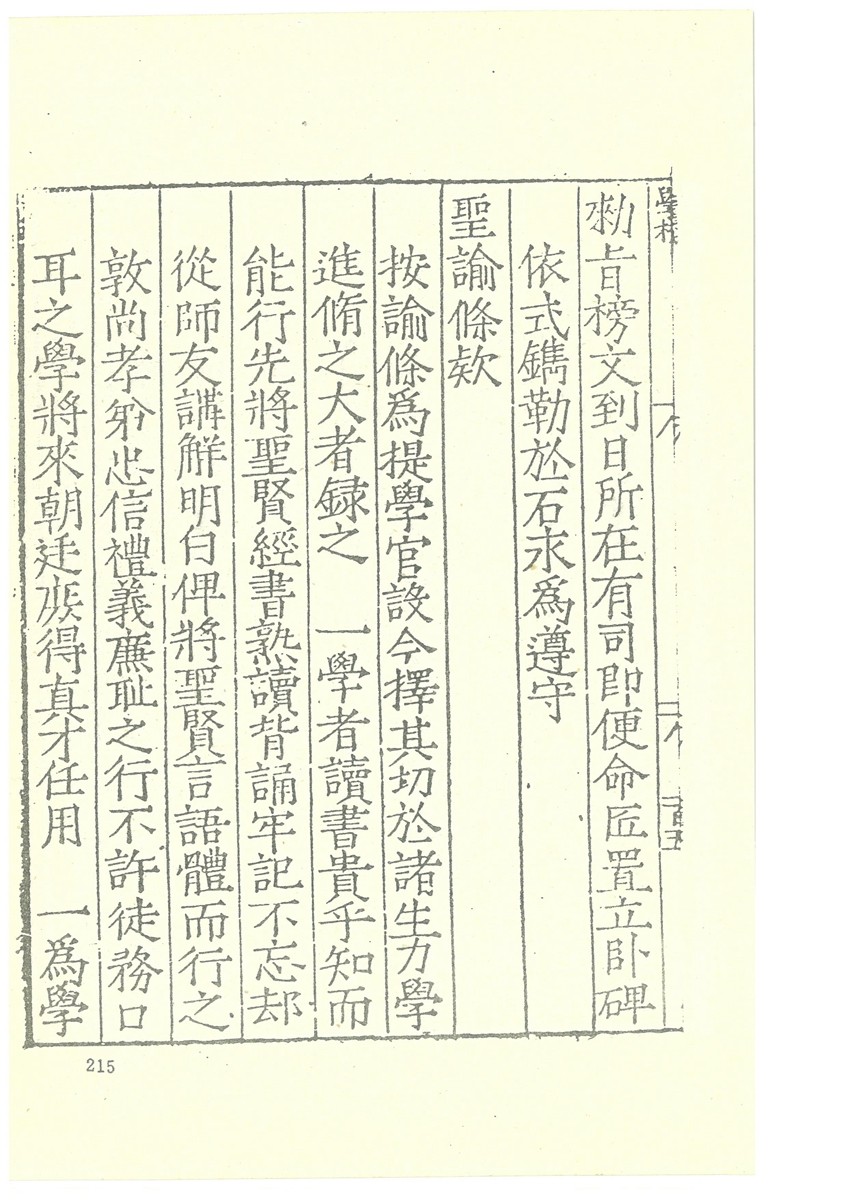 學校
勑旨榜文到日所在有司即便命匠置立卧碑
依式鐫勒於石永爲遵守
聖諭條欵
按諭條爲提學官設今擇其切於諸生力學
進脩之大者録之　一學者讀書貴乎知而
能行先將聖賢經書熟讀背誦牢記不忘却
從師友講解明白俾將聖賢言語體而行之
敦尚孝弟忠信禮義廉耻之行不許徒務口
耳之學將來朝廷庻得真才任用　一爲學
215